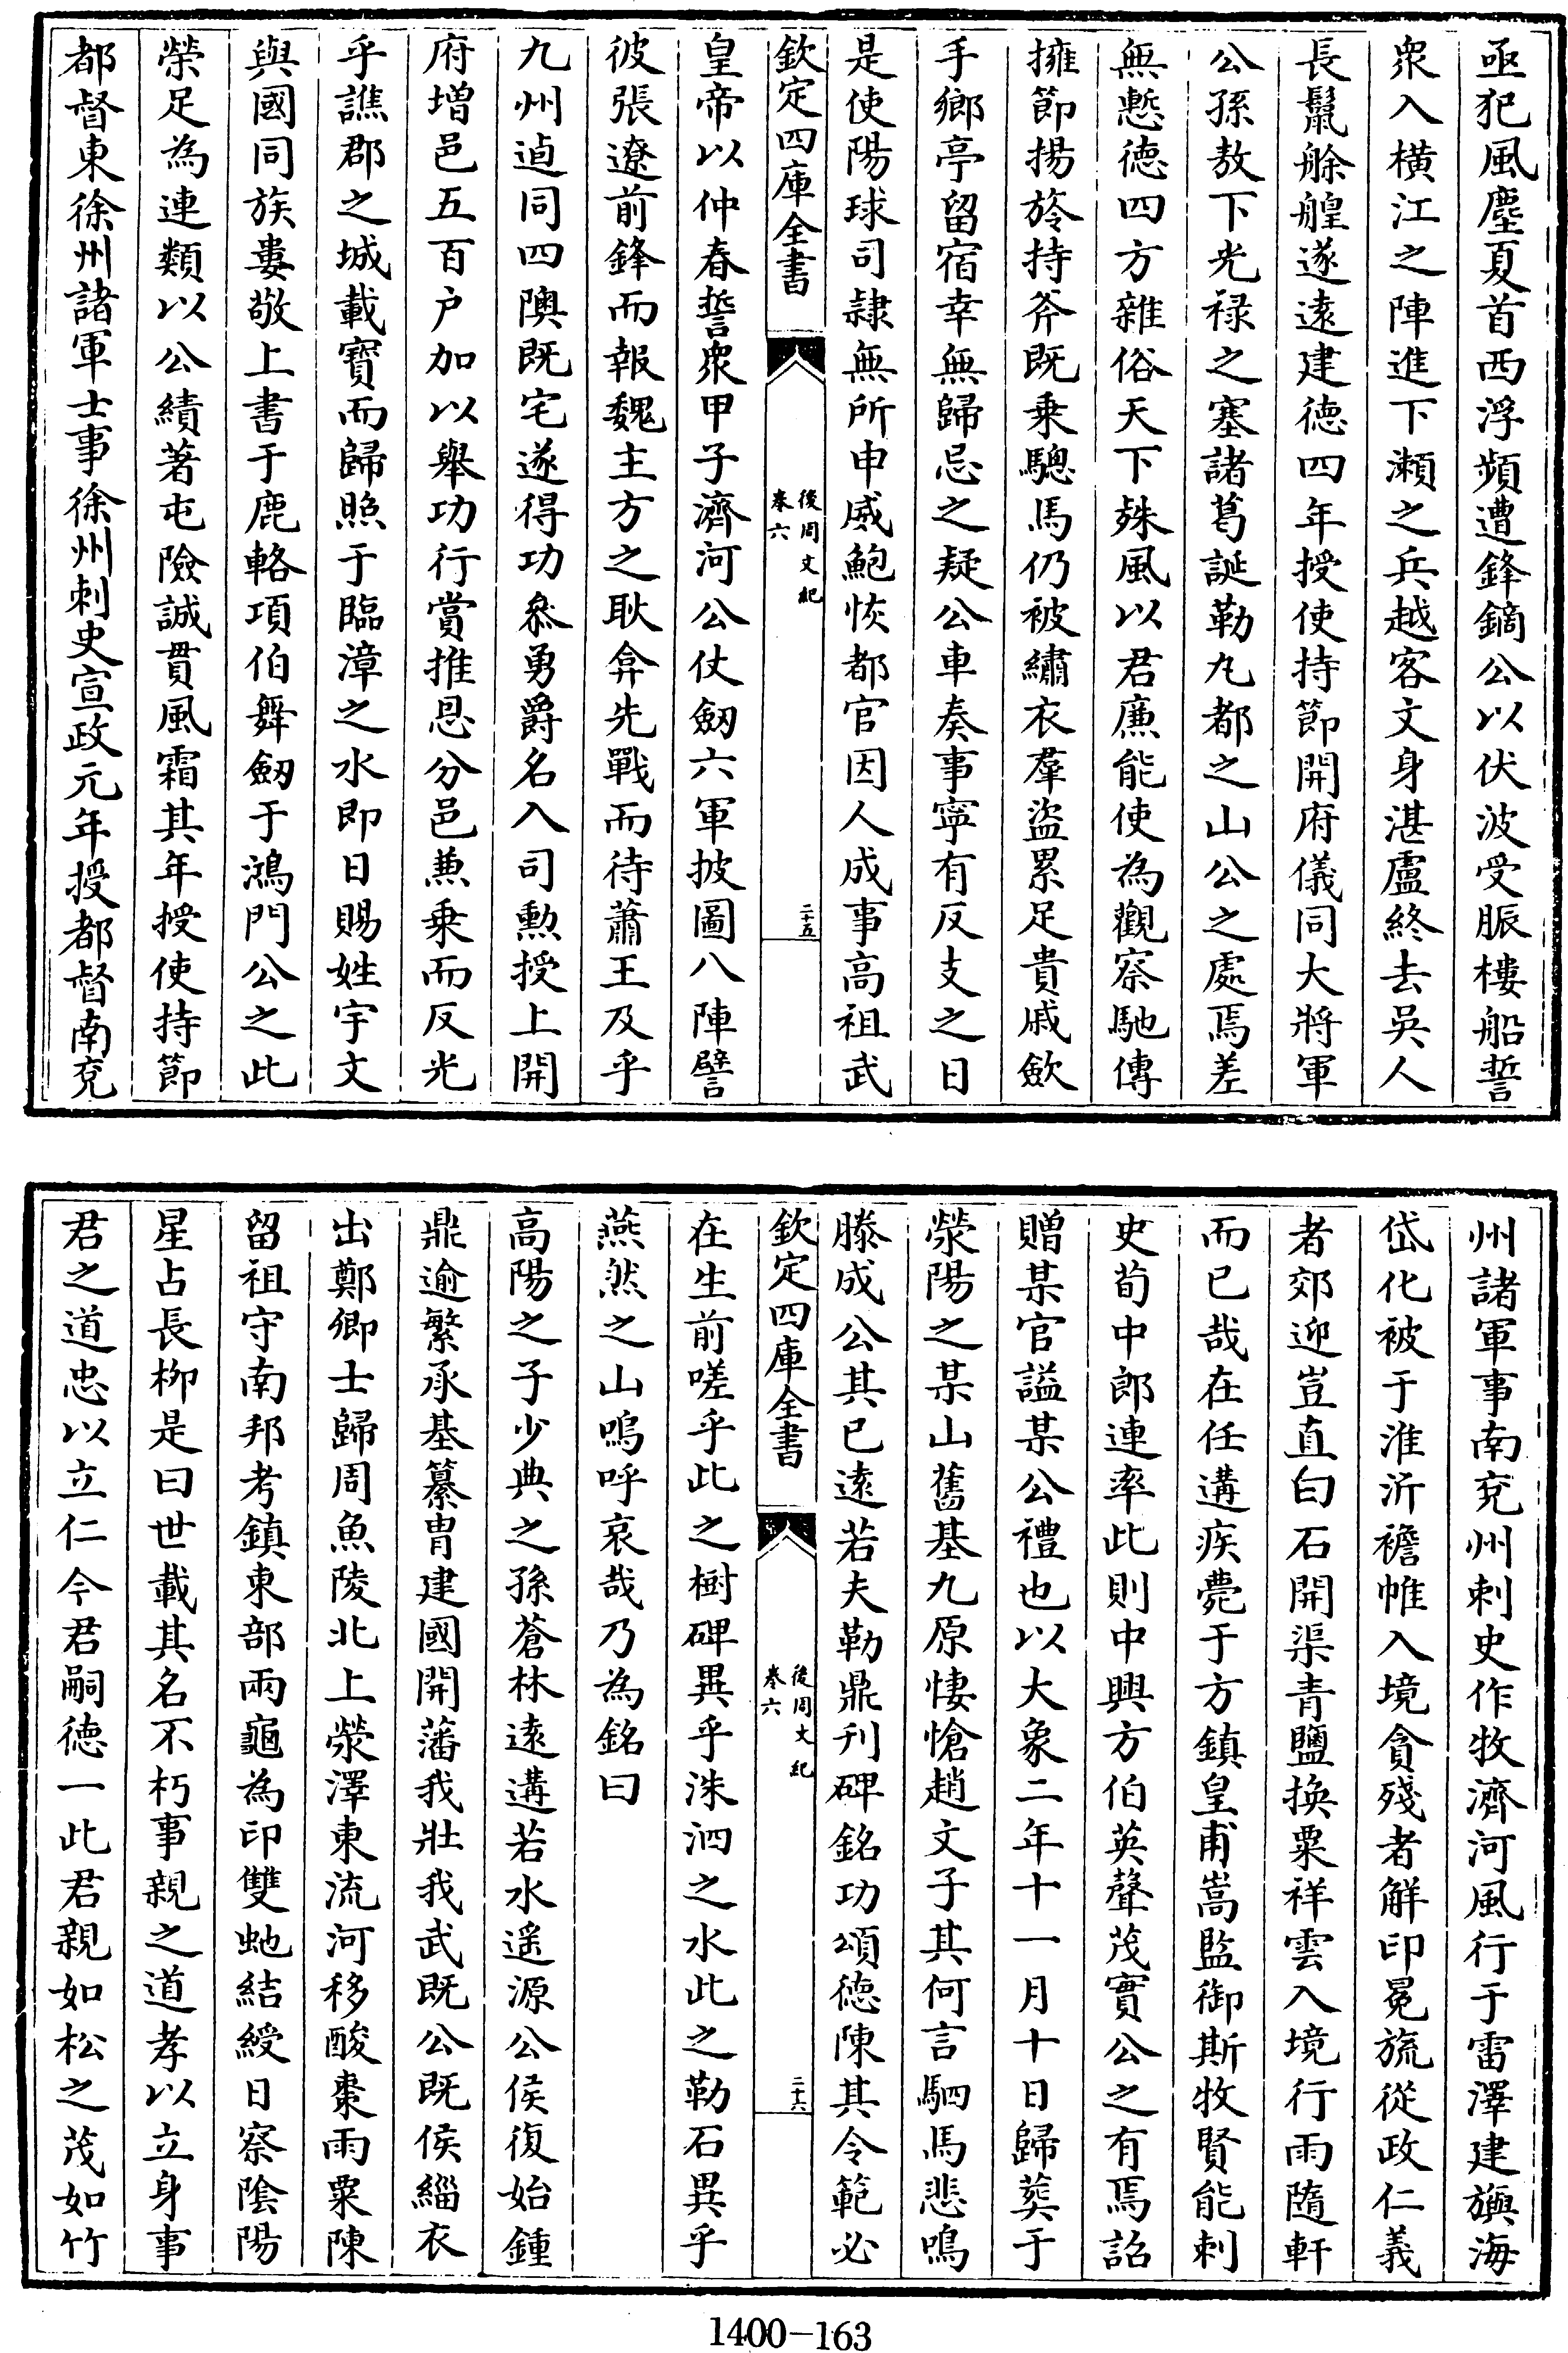 亟犯風塵夏首西浮頻遭鋒鏑公以伏波受脤樓船誓
衆入横江之陣進下瀨之兵越客文身湛盧終去吳人
長鬣艅艎遂遠建德四年授使持節開府儀同大將軍
公孫敖下光禄之塞諸葛誕勒九都之山公之處焉差
無慙德四方雜俗天下殊風以君廉能使為觀察馳傳
擁節揚旍持斧既乗驄馬仍被繡衣羣盜累足貴戚歛
手鄉亭留宿幸無歸忌之疑公車奏事寧有反支之日
是使陽球司隷無所申威鮑恢都官因人成事高祖武
欽定四庫全書
後周文紀
卷六
二十五
皇帝以仲春誓衆甲子濟河公仗劒六軍披圖八陣譬
彼張遼前鋒而報魏主方之耿弇先戰而待蕭王及乎
九州逌同四隩既宅遂得功叅勇爵名入司勲授上開
府增邑五百户加以舉功行賞推恩分邑兼乗而反光
乎譙郡之城載寶而歸照于臨漳之水即日賜姓宇文
與國同族婁敬上書于鹿輅項伯舞劒于鴻門公之此
榮足為連類以公績著屯險誠貫風霜其年授使持節
都督東徐州諸軍士事徐州刺史宣政元年授都督南兖
州諸軍事南兖州刺史作牧濟河風行于雷澤建旟海
岱化被于淮沂襜帷入境貪殘者解印冕旒從政仁義
者郊迎豈直白石開渠青鹽換粟祥雲入境行雨隨軒
而已哉在任遘疾薨于方鎮皇甫嵩監御斯牧賢能刺
史荀中郎連率此則中興方伯英聲茂實公之有焉詔
贈某官謚某公禮也以大象二年十一月十日歸葬于
滎陽之某山舊基九原悽愴趙文子其何言駟馬悲鳴
滕成公其已遠若夫勒鼎刋碑銘功頌德陳其令範必
欽定四庫全書
後周文紀
卷六
二十六
在生前嗟乎此之樹碑異乎洙泗之水此之勒石異乎
燕然之山嗚呼哀哉乃為銘曰
高陽之子少典之孫蒼林遠遘若水遥源公侯復始鍾
鼎逾繁承基纂胄建國開藩我壯我武既公既侯緇衣
出鄭卿士歸周魚陵北上滎澤東流河移酸棗雨粟陳
留祖守南邦考鎮東部兩龜為印雙虵結綬日察隂陽
星占長栁是曰世載其名不朽事親之道孝以立身事
君之道忠以立仁今君嗣德一此君親如松之茂如竹
1400-163